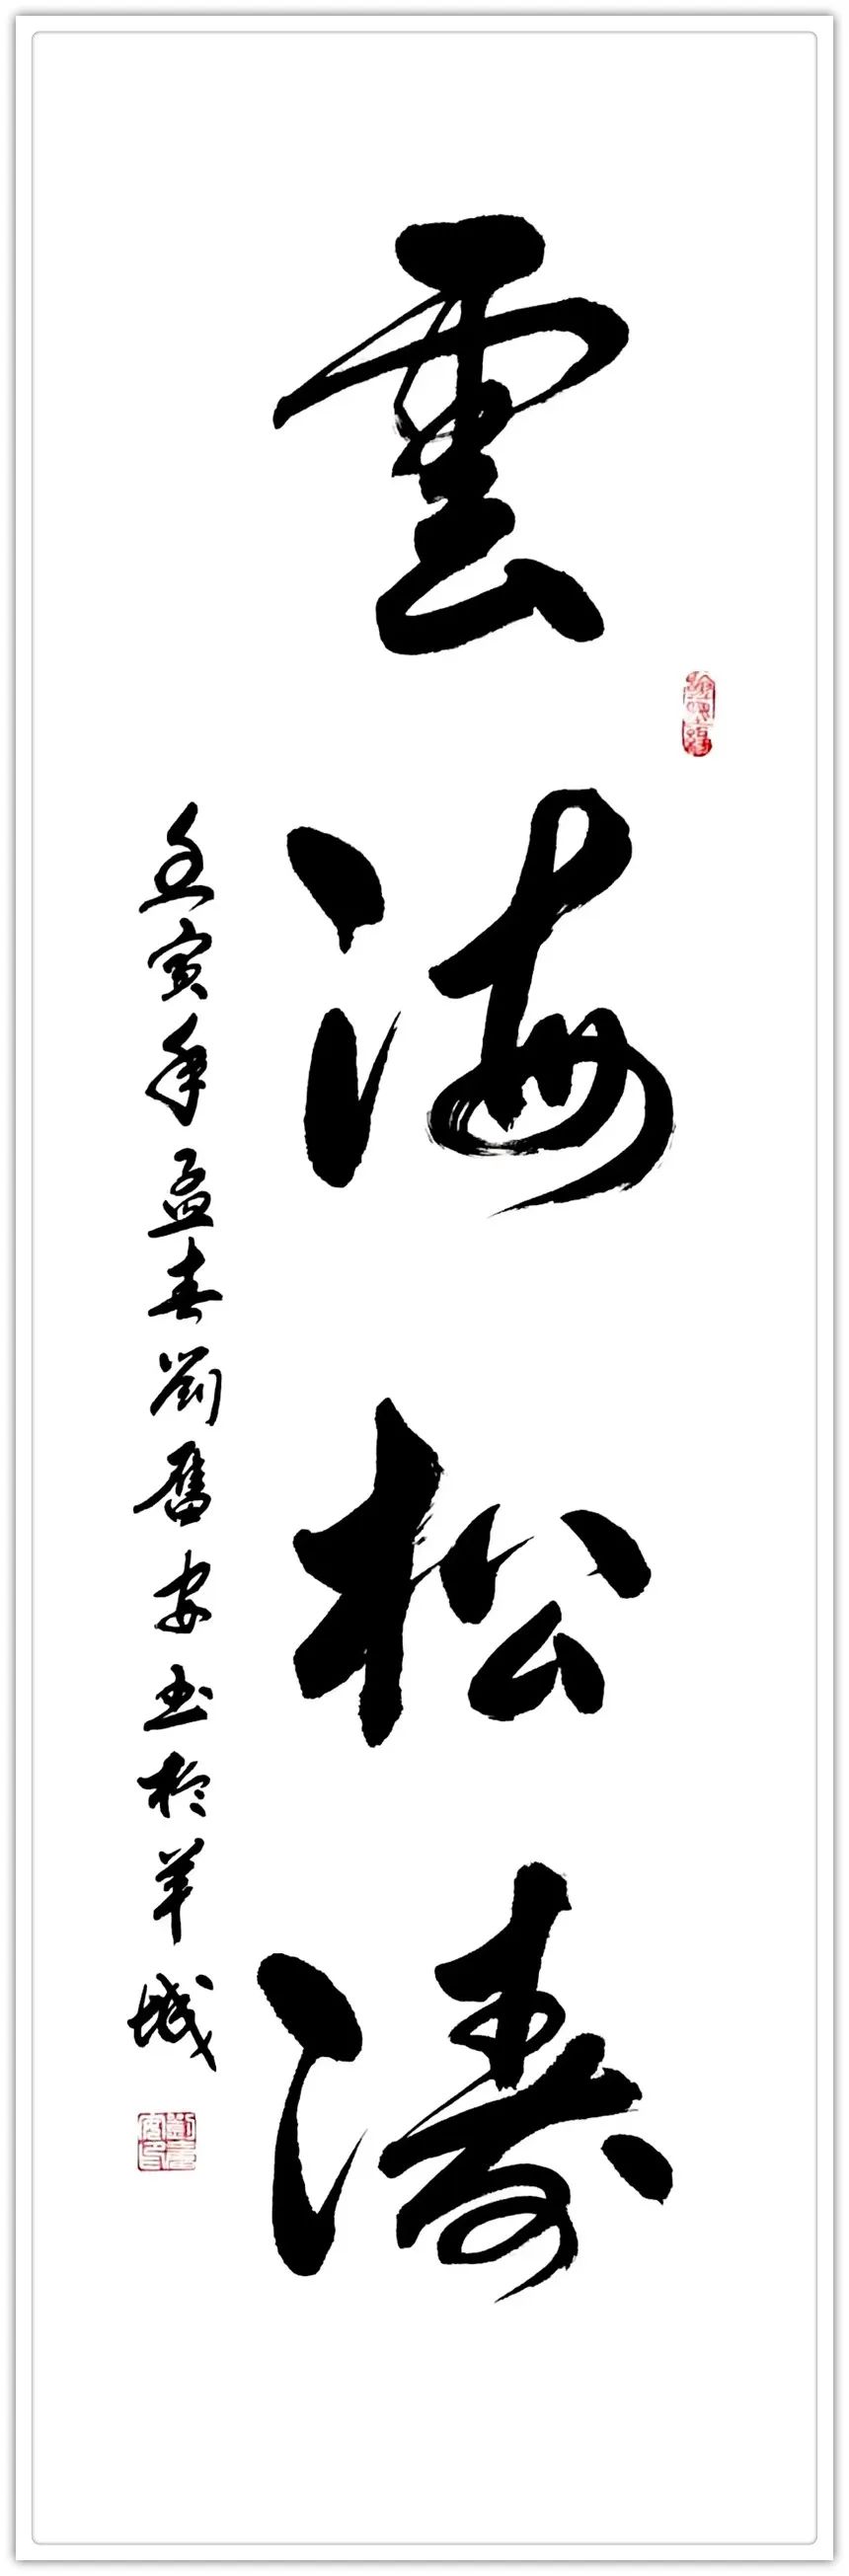 雲海松濤
壬寅年孟春劉舊安书於羊城